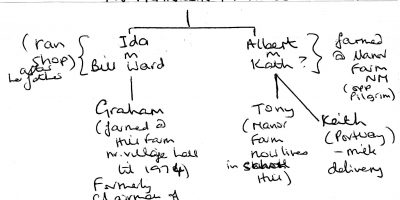 Ida
m
Bill Ward
(ran
shop)
after
her father
Albert
m
Kath ?
farmed
@ Manor
Farm
NM
(opp
Pilgrim)
Graham
(farmed @
this farm
nr. village hall
til 1974)
Formerly
Chairman of
Tony
(Manor
Farm
now lives
in
this)
Keith
(Portway)
– milk
delivery